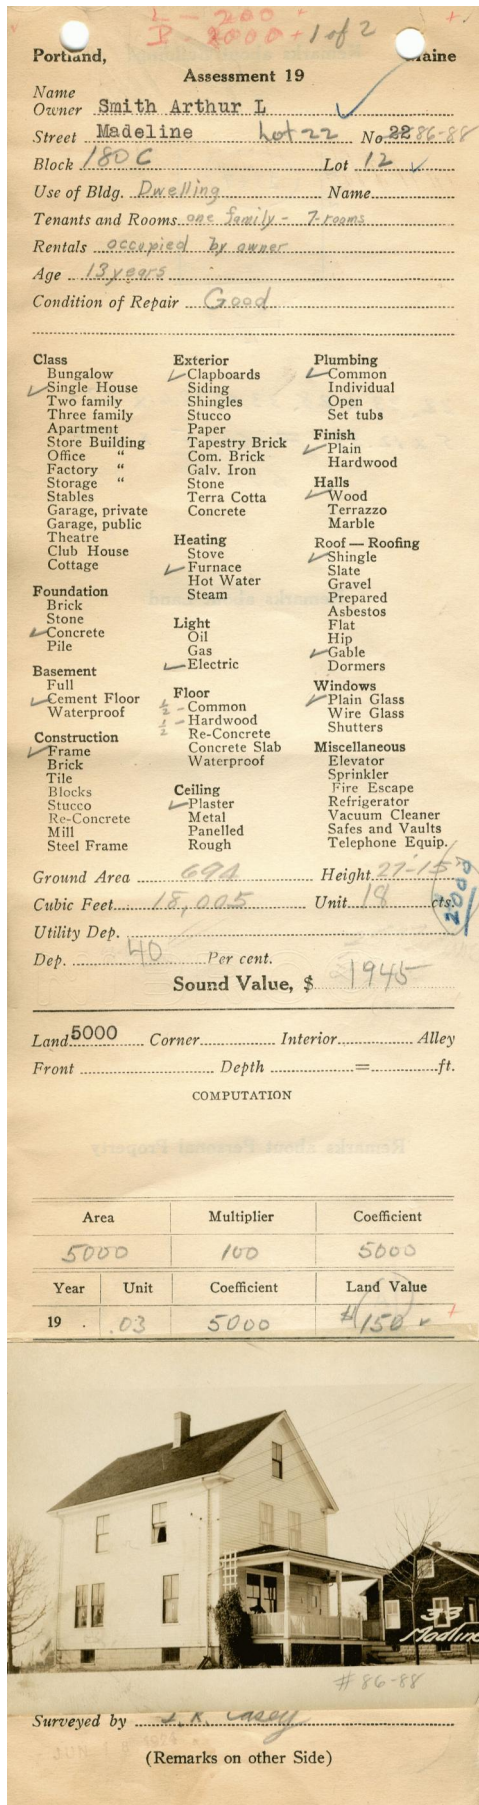 L — 200 +
B — 2000 + 1 of 2
Portland, Maine
Assessment 19
Name
Owner Smith Arthur L
Street Madeline Lot 22 No. 22 86-88
Block 180 C Lot 12
Use of Bldg. Dwelling Name
Tenants and Rooms one family - 7-rooms
Rentals occupied by owner
Age 13 years
Condition of Repair Good
Class
Bungalow
Single House
Two family
Three family
Apartment
Store Building
Office "
Factory "
Storage "
Stables
Garage, private
Garage, public
Theatre
Club House
Cottage
Foundation
Brick
Stone
Concrete
Pile
Basement
Full
Cement Floor
Waterproof
Construction
Frame
Brick
Tile
Blocks
Stucco
Re-Concrete
Mill
Steel Frame
Exterior
Clapboards
Siding
Shingles
Stucco
Paper
Tapestry Brick
Com. Brick
Galv. Iron
Stone
Terra Cotta
Concrete
Heating
Stove
Furnace
Hot Water
Steam
Light
Oil
Gas
Electric
Floor
½ - Common
½ - Hardwood
Re-Concrete
Concrete Slab
Waterproof
Ceiling
Plaster
Metal
Panelled
Rough
Plumbing
Common
Individual
Open
Set tubs
Finish
Plain
Hardwood
Halls
Wood
Terrazzo
Marble
Roof — Roofing
Shingle
Slate
Gravel
Prepared
Asbestos
Flat
Hip
Gable
Dormers
Windows
Plain Glass
Wire Glass
Shutters
Miscellaneous
Elevator
Sprinkler
Fire Escape
Refrigerator
Vacuum Cleaner
Safes and Vaults
Telephone Equip.
Ground Area 694 Height 27-15
Cubic Feet 18,005 Unit 18 cts.
2000
Utility Dep.
Dep. 40 Per cent.
Sound Value, $ 1945
Land 5000 Corner Interior Alley
Front Depth = ft.
COMPUTATION
Area Multiplier Coefficient
5000 100 5000
Year Unit Coefficient Land Value
19 . .03 5000 $150
33
Madline
# 86-88
Surveyed by J. R. Casey
(Remarks on other Side)